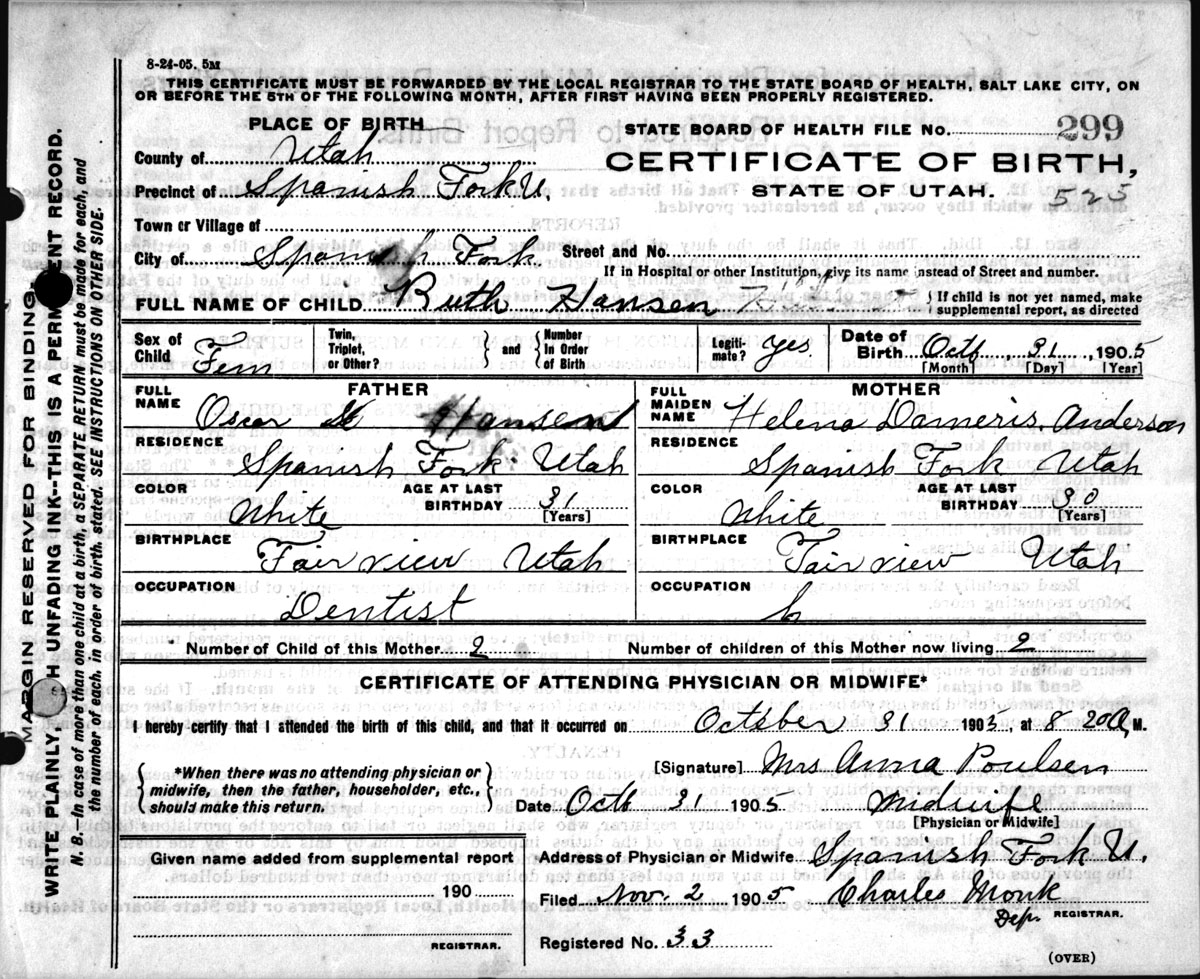 8-24-05. 5M
THIS CERTIFICATE MUST BE FORWARDED BY THE LOCAL REGISTRAR TO THE STATE BOARD OF HEALTH, SALT LAKE CITY, ON
OR BEFORE THE 5TH OF THE FOLLOWING MONTH, AFTER FIRST HAVING BEEN PROPERLY REGISTERED.
PLACE OF BIRTH
STATE BOARD OF HEALTH FILE No. 299
County of Utah
CERTIFICATE OF BIRTH,
Precinct of Spanish Fork U.
STATE OF UTAH. 525
Town or Village of
City of Spanish Fork. Street and No.
If in Hospital or other Institution, give its name instead of Street and number.
FULL NAME OF CHILD Ruth Hansen
If child is not yet named, make
supplemental report, as directed
Sex of Child Fem
Twin, Triplet, or Other?
and
Number In Order of Birth
Legiti-mate? yes
Date of Birth Octb 31, 1905
[Month] [Day] [Year]
FATHER
FULL NAME Oscar Hansen
RESIDENCE Spanish Fork Utah
COLOR White
AGE AT LAST BIRTHDAY 31 [Years]
BIRTHPLACE Fairview Utah
OCCUPATION Dentist
MOTHER
FULL MAIDEN NAME Helena Dameris. Anderson
RESIDENCE Spanish Fork Utah
COLOR White
AGE AT LAST BIRTHDAY 30 [Years]
BIRTHPLACE Fairview Utah
OCCUPATION h
Number of Child of this Mother 2
Number of children of this Mother now living 2
CERTIFICATE OF ATTENDING PHYSICIAN OR MIDWIFE*
I hereby certify that I attended the birth of this child, and that it occurred on October 31 1903, at 8 20 A, M.
*When there was no attending physician or
midwife, then the father, householder, etc.,
should make this return.
[Signature] Mrs Anna Poulsen
Date Octb 31 1905 Midwife
[Physician or Midwife]
Given name added from supplemental report
190
REGISTRAR.
Address of Physician or Midwife Spanish Fork U.
Filed Nov. 2 1905 Charles Monk
Dep. REGISTRAR.
Registered No. 33
(OVER)
MARGIN RESERVED FOR BINDING.
WRITE PLAINLY, UNFADING INK--THIS IS A PERM ENT RECORD.
N. B.—In case of more than one child at a birth, a SEPARATE RETURN must be made for each, and
the number of each, in order of birth, stated. SEE INSTRUCTIONS ON OTHER SIDE.